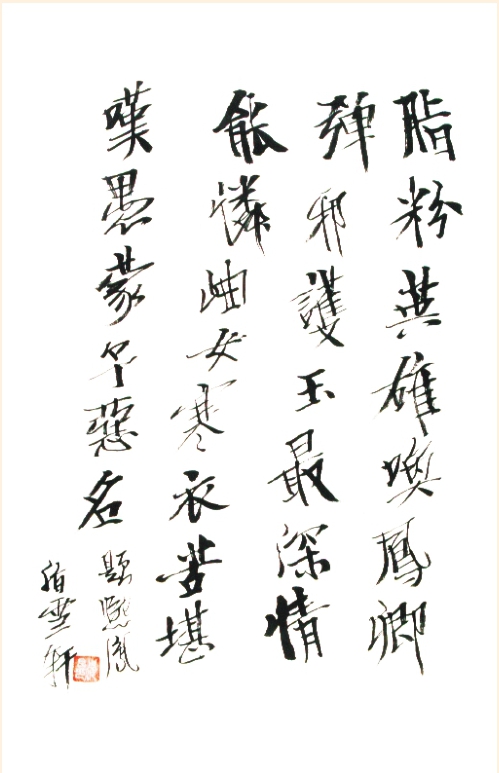 脂粉英雄喚鳳卿
彈邪護玉最深情
能憐岫女寒衣苦堪
嘆愚蒙予惡名
題熙鳳
雲軒